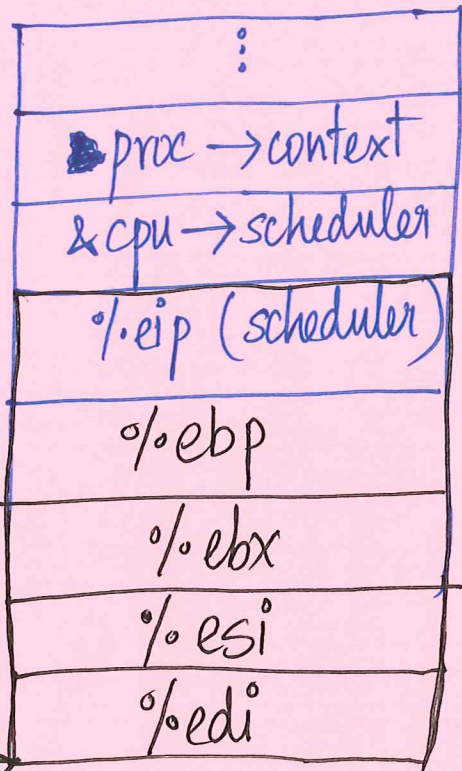 ⋮
proc → context
& cpu → scheduler
%eip (scheduler)
%ebp
%ebx
%esi
%edi